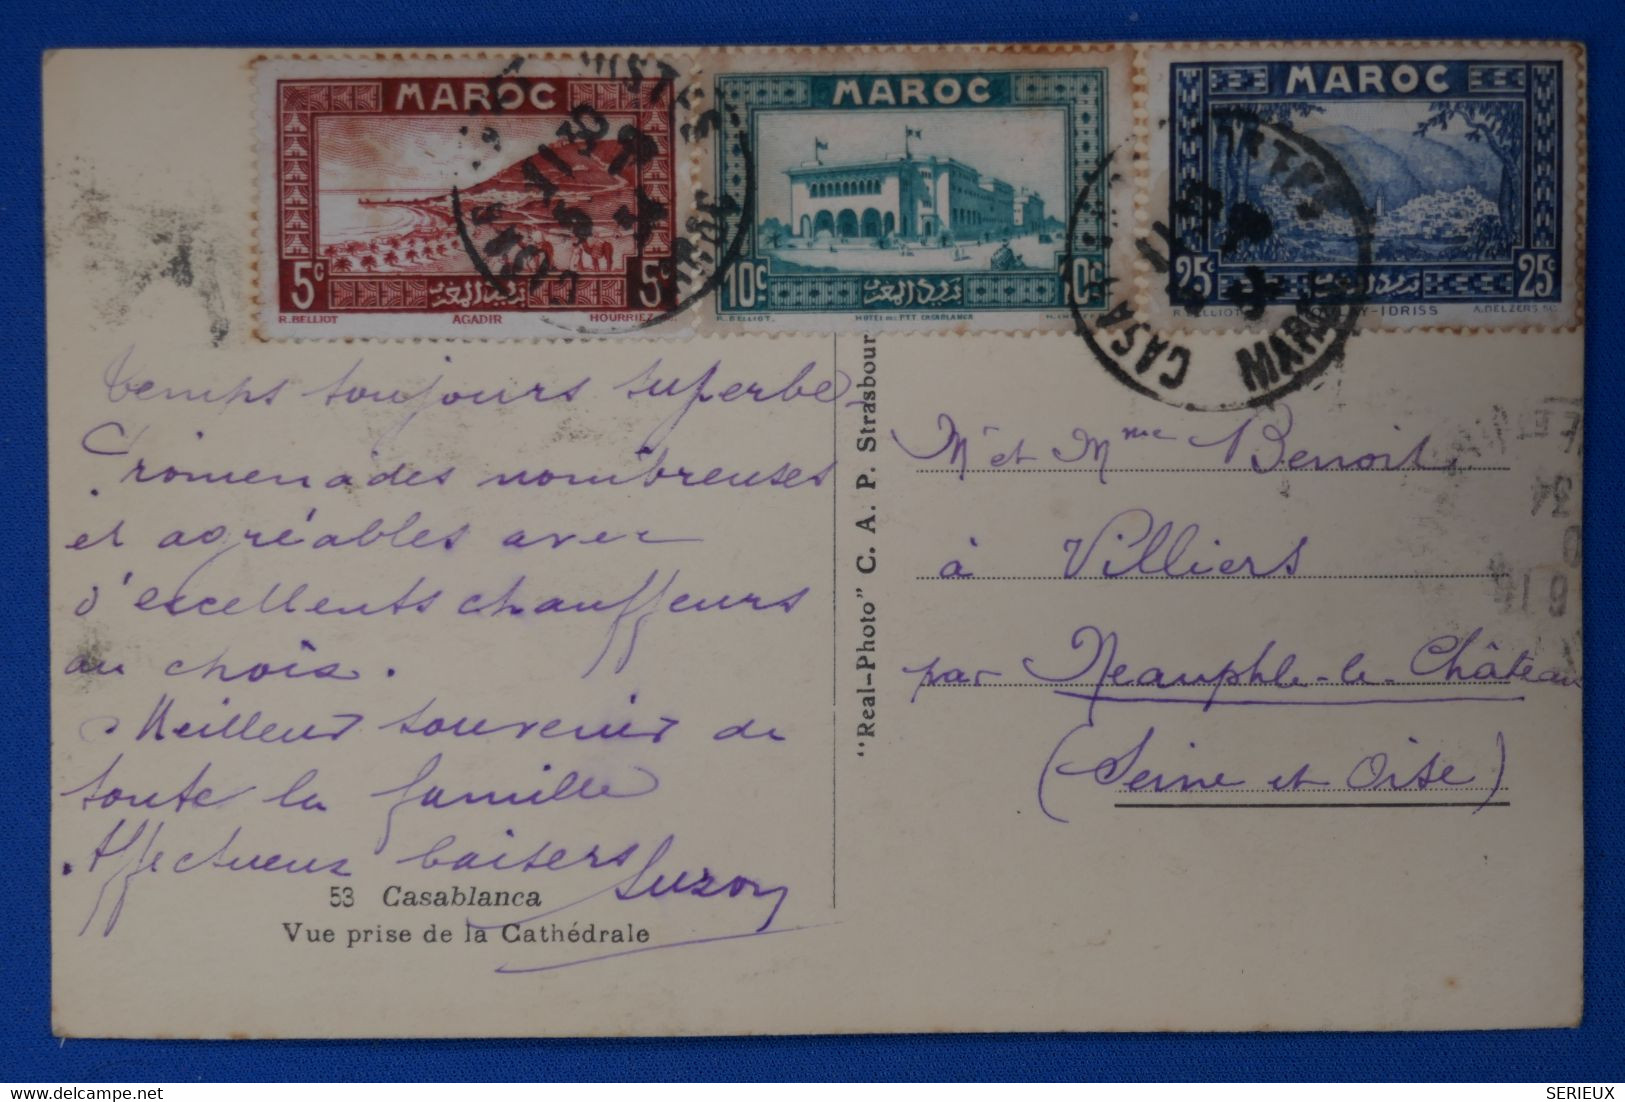 MAROC
5c 5c
R. BELLIOT AGADIR HOURRIEZ
MAROC
10c 10c
R. BELLIOT. HOTEL DES PTT CASABLANCA
MAROC
25c 25c
-IDRISS A. DELZERS SC.
CASA
MAROC
Temps toujours superbe -
Promenades nombreuses
et agréables avec
d'excellents chauffeurs
au choix.
Meilleurs souvenirs de
toute la famille
Affectueux baisers
Suzon
53 Casablanca
Vue prise de la Cathédrale
"Real-Photo" C. A. P. Strasbour
Mr et Mme Benoit
à Villiers
par Neauphle-le-Château
(Seine et Oise)
SERIEUX